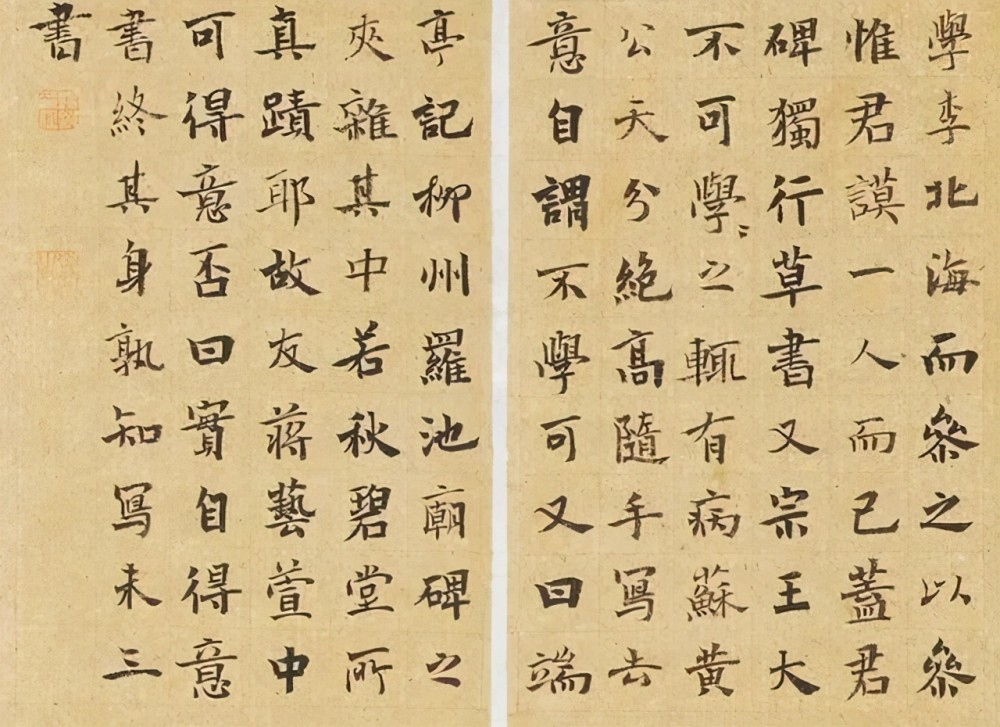 學李北海而叅之以叅
惟君謨一人而已蓋君
碑獨行草書又宗王大
不可學〻之輒有病蘇黃
公天分絕高隨手寫去
意自謂不學可又曰端
亭記柳州羅池廟碑之
夾雜其中若秋碧堂所
真蹟耶故友蔣藝萱中
可得意否曰實自得意
書終其身孰知寫未三
書